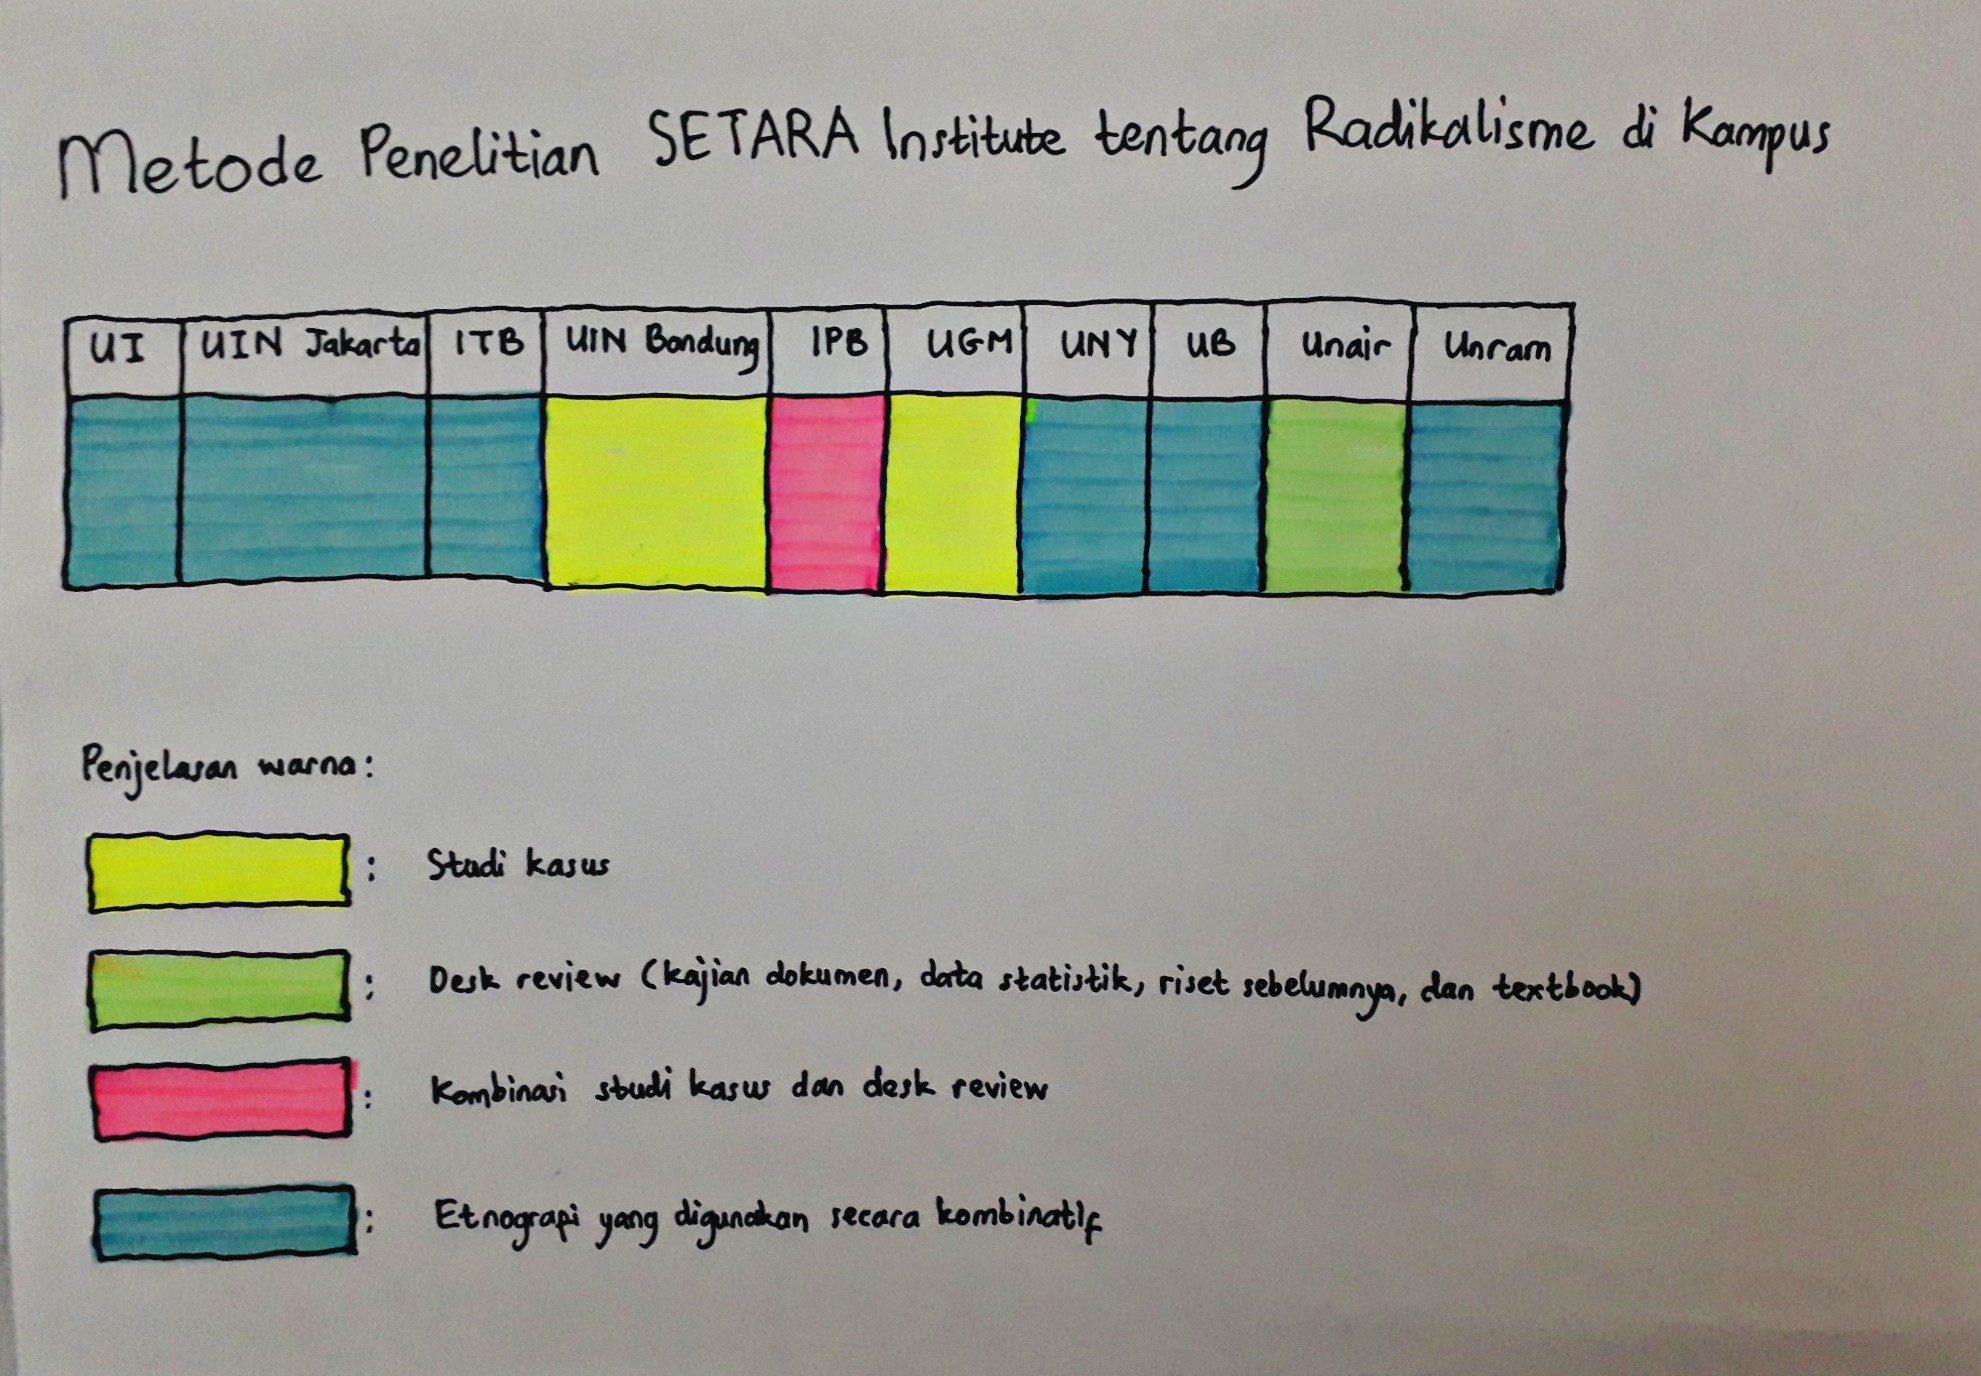 Metode Penelitian SETARA Institute tentang Radikalisme di Kampus
UI UIN Jakarta ITB UIN Bandung IPB UGM UNY UB Unair Unram
Penjelasan warna:
: Studi kasus
: Desk review (kajian dokumen, data statistik, riset sebelumnya, dan textbook)
: Kombinasi studi kasus dan desk review
: Etnograpi yang digunakan secara kombinatif